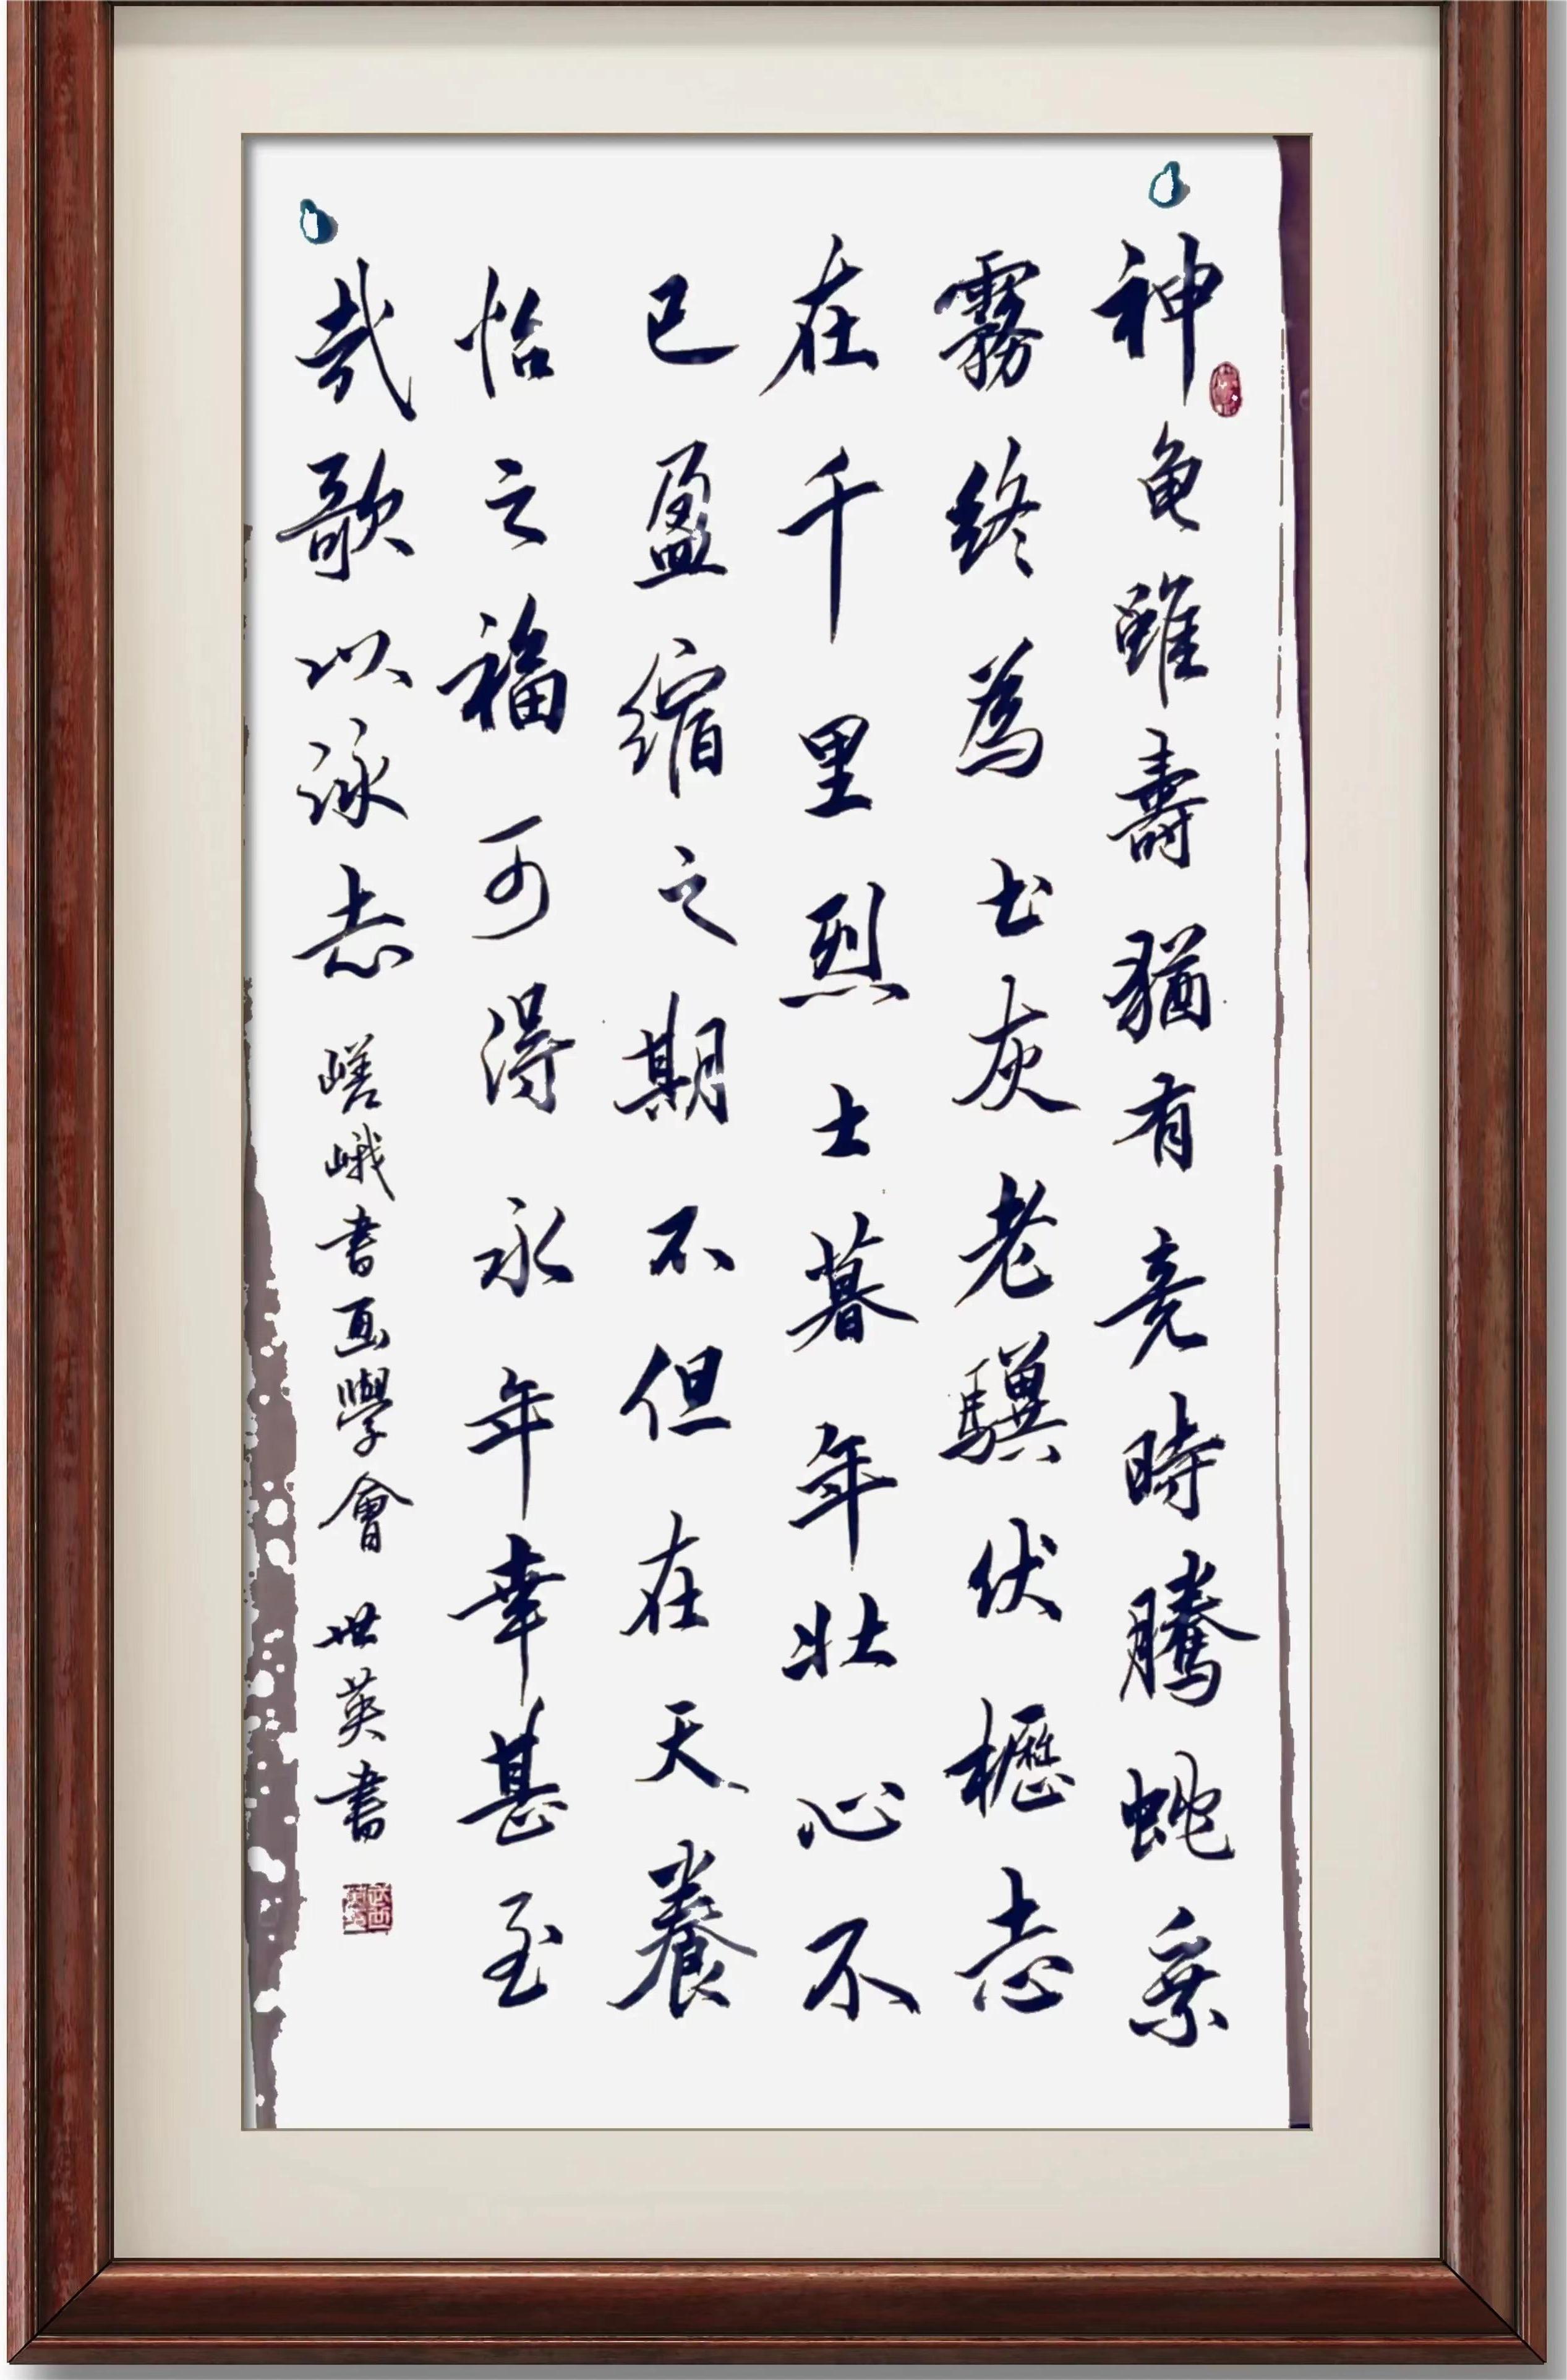 神龟雖壽猶有竟時騰蛇乘
霧終為土灰老驥伏櫪志
在千里烈士暮年壯心不
已盈缩之期不但在天養
怡之福可得永年幸甚至
哉歌以泳志 嵯峨书画學會 世英書